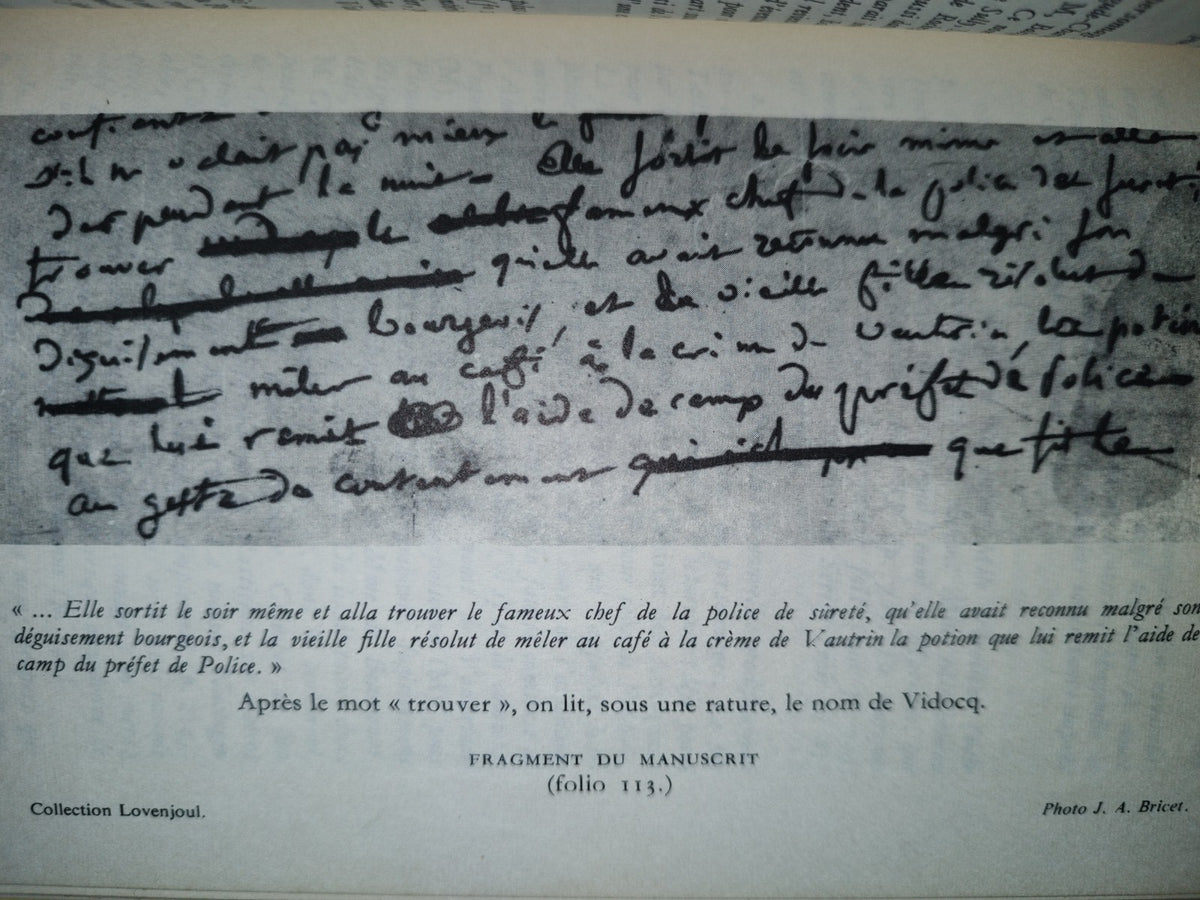 s'il n'était pas mieux
dar pendant la nuit. Elle sortit le soir même et alla
trouver le fameux chef de la police de sureté
qu'elle avait reconnu malgré son
déguisement bourgeois, et la vieille fille résolut de
mêler au café à la crème de Vautrin, la potion
que lui remit l'aide de camp du préfet de Police
au geste de contentement que fit le
« ... Elle sortit le soir même et alla trouver le fameux chef de la police de sûreté, qu'elle avait reconnu malgré son
déguisement bourgeois, et la vieille fille résolut de mêler au café à la crème de Vautrin la potion que lui remit l'aide de
camp du préfet de Police. »
Après le mot « trouver », on lit, sous une rature, le nom de Vidocq.
FRAGMENT DU MANUSCRIT
(folio 113.)
Collection Lovenjoul.
Photo J. A. Bricet.